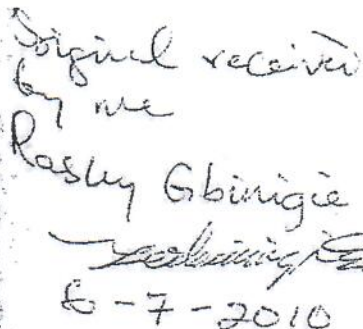 Original received
by me
Rosky Gbinigie
6-7-2010